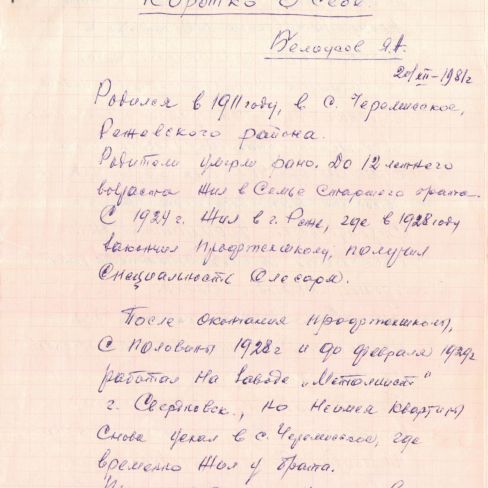 Коротко о себе.
Белоусов Я.А.
20/III-1981г
Родился в 1911 году, в с. Черемисское,
Режевского района.
Родители умерли рано. До 12 летнего
возраста жил в семье старшего брата.
С 1924 г. жил в г. Реже, где в 1928 году
закончил профтехшколу, получил
специальность слесаря.
После окончания профтехшколы,
с половины 1928 г и до февраля 1929г
работал на заводе „Металлист"
г. Свердловск., но не имея квартиры
снова уехал в с. Черемисское, где
временно жил у брата.